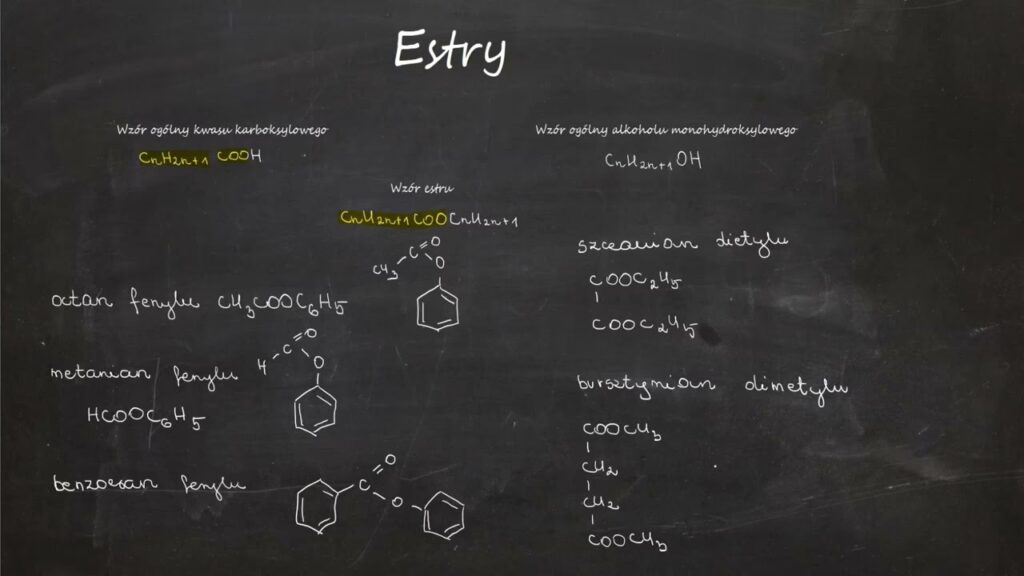 Estry
Wzór ogólny kwasu karboksylowego
CnH2n+1 COOH
Wzór ogólny alkoholu monohydroksylowego
CnH2n+1OH
Wzór estru
CnH2n+1COOCnH2n+1
octan fenylu CH3COOC6H5
CH3 C O
O
metanian fenylu
H C O
O
HCOOC6H5
benzoesan fenylu
C O
O
szczawian dietylu
COOC2H5
COOC2H5
bursztynian dimetylu
COOCH3
CH2
CH2
COOCH3